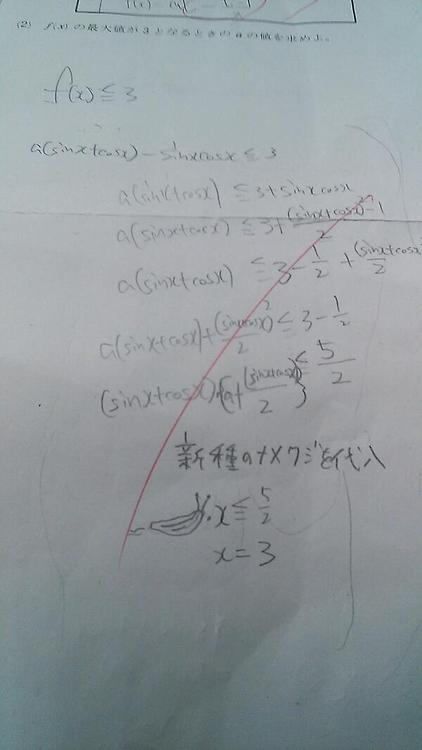 (2) f(x) の最大値が 3 となるときの a の値を求めよ。
f(x) ≦ 3
a(sinx+cosx) - sinxcosx ≦ 3
a(sinx+cosx) ≦ 3 + sinxcosx
a(sinx+cosx) ≦ 3 + (sinx+cosx)²-1 / 2
a(sinx+cosx) ≦ 3 - 1/2 + (sinx+cosx) / 2
a(sinx+cosx) + (sinxcosx)² / 2 ≦ 3 - 1/2
(sinx+cosx) { a + (sinx+cosx) / 2 } ≦ 5/2
新種のナメクジを代入
x ≦ 5/2
x = 3